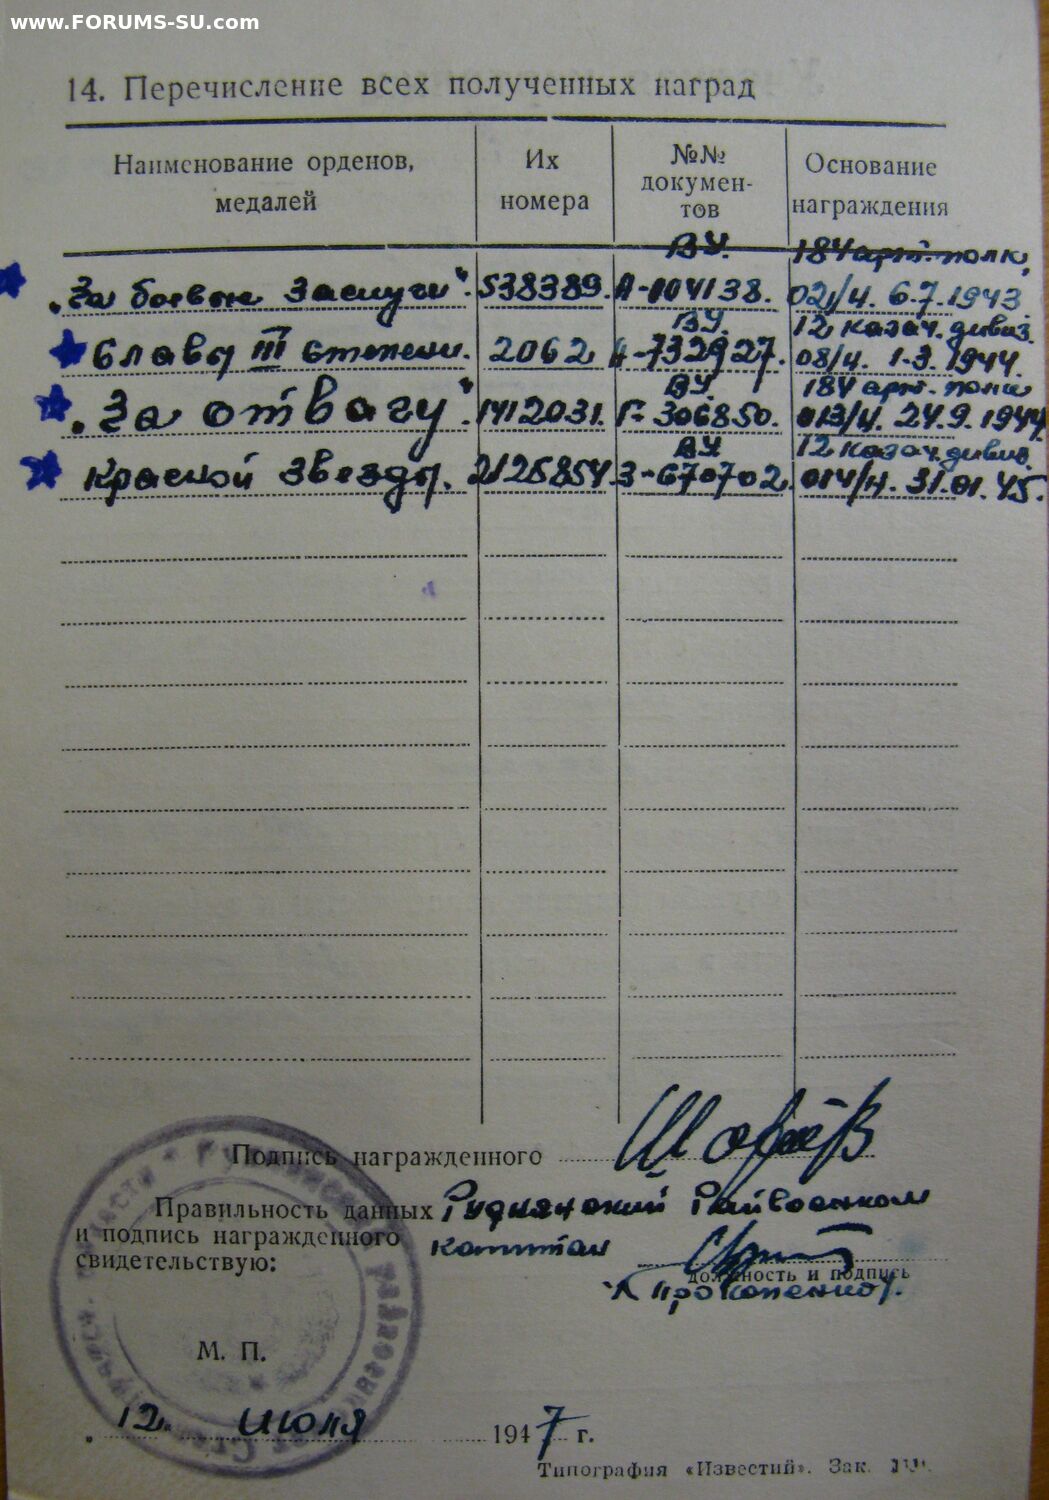 www.FORUMS-SU.com
14. Перечисление всех полученных наград
Наименование орденов, медалей
Их номера
№№ докумен-тов
Основание награждения
ВУ. 184 арт. полк,
„За боевые заслуги". 538389. А-004138. 02/н. 6.7.1943
ВУ. 12 казач. дивиз.
Славы III степени. 2062 А-732927. 08/н. 1.3.1944.
ВУ. 184 арт. полк
„За отвагу". 1412031. Г-306850. 013/н. 24.9.1944
ВУ 12 казач. дивиз.
Красной Звезды. 2125854. З-670702. 014/н. 31.01.45.
Подпись награжденного
Правильность данных Руднянский Райвоенком
и подпись награжденного капитан
свидетельствую:
должность и подпись
/Прокопенко/.
М. П.
„12" июля 1947 г.
Типография «Известий». Зак.